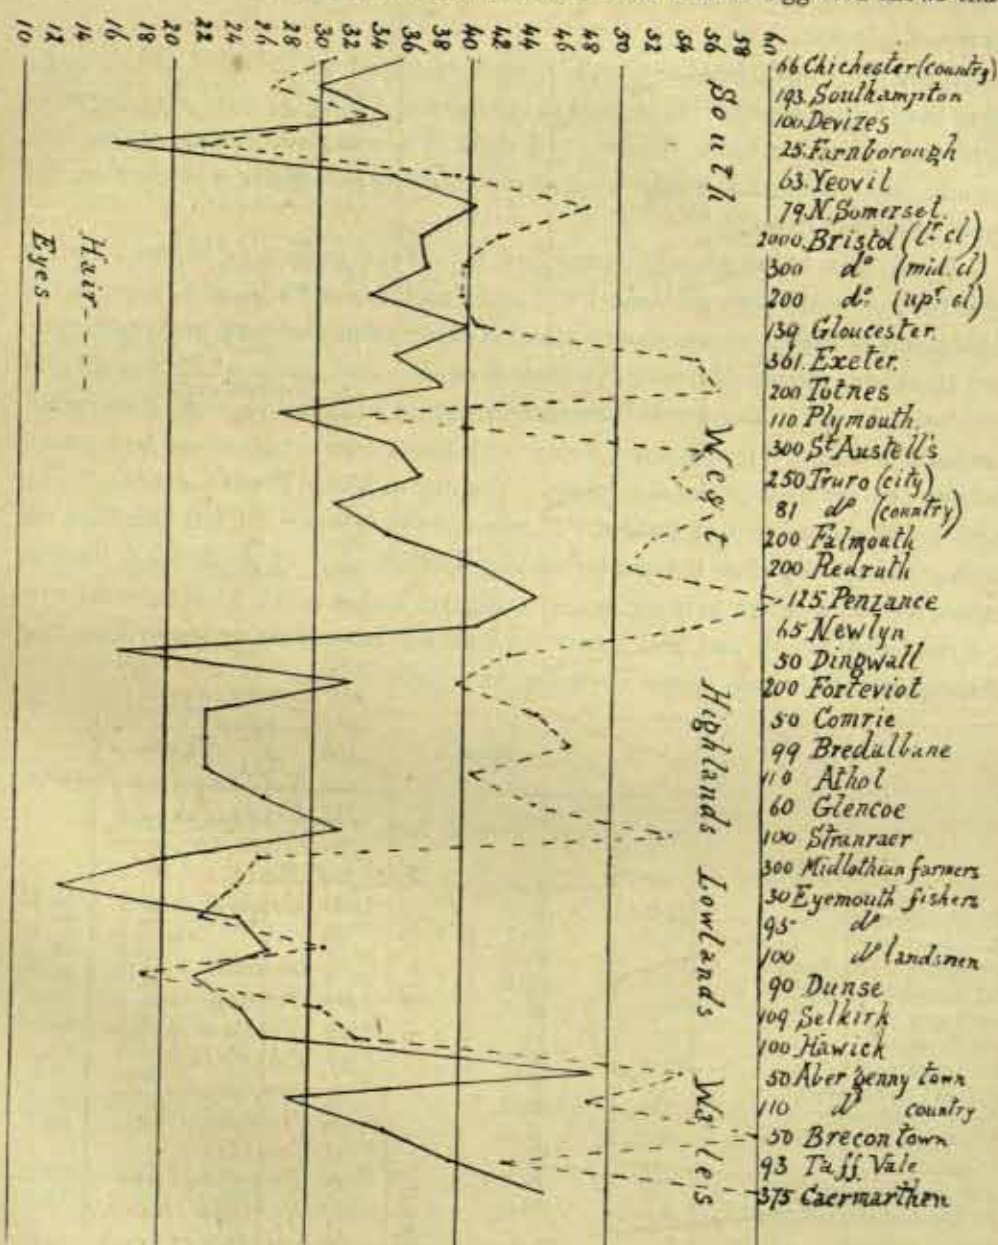 10 12 14 16 18 20 22 24 26 28 30 32 34 36 38 40 42 44 46 48 50 52 54 56 58 60
66 Chichester (country)
193. Southampton
100. Devizes
25. Farnborough
63. Yeovil
79. N. Somerset.
2000. Bristol (lr. cl)
300 do (mid. cl)
200 do: (upr. cl)
139 Gloucester.
361. Exeter.
200 Totnes
110 Plymouth.
300 St Austell's
250 Truro (city)
81 do (country)
200 Falmouth
200 Redruth
125. Penzance
65 Newlyn
50 Dingwall
200 Forteviot
50 Comrie
99 Bredalbane
110 Athol
60 Glencoe
100 Stranraer
300 Midlothian farmers
30 Eyemouth fishers
95 do
100 do landsmen
90 Dunse
109 Selkirk
100 Hawick
50 Abergenny town
110 do country
50 Brecon town
93 Taff Vale
375 Caermarthen
South
West
Highlands
Lowlands
Wales
Hair
Eyes